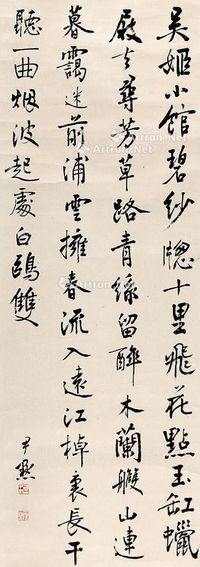 吳姬小館碧紗牕十里飛花點玉缸蠟
屐去尋芳草路青絲留醉木蘭艭山連
暮靄迷前浦雲擁春流入遠江棹裏長干
聽一曲烟波起處白鷗雙
尹默
Artron.Net